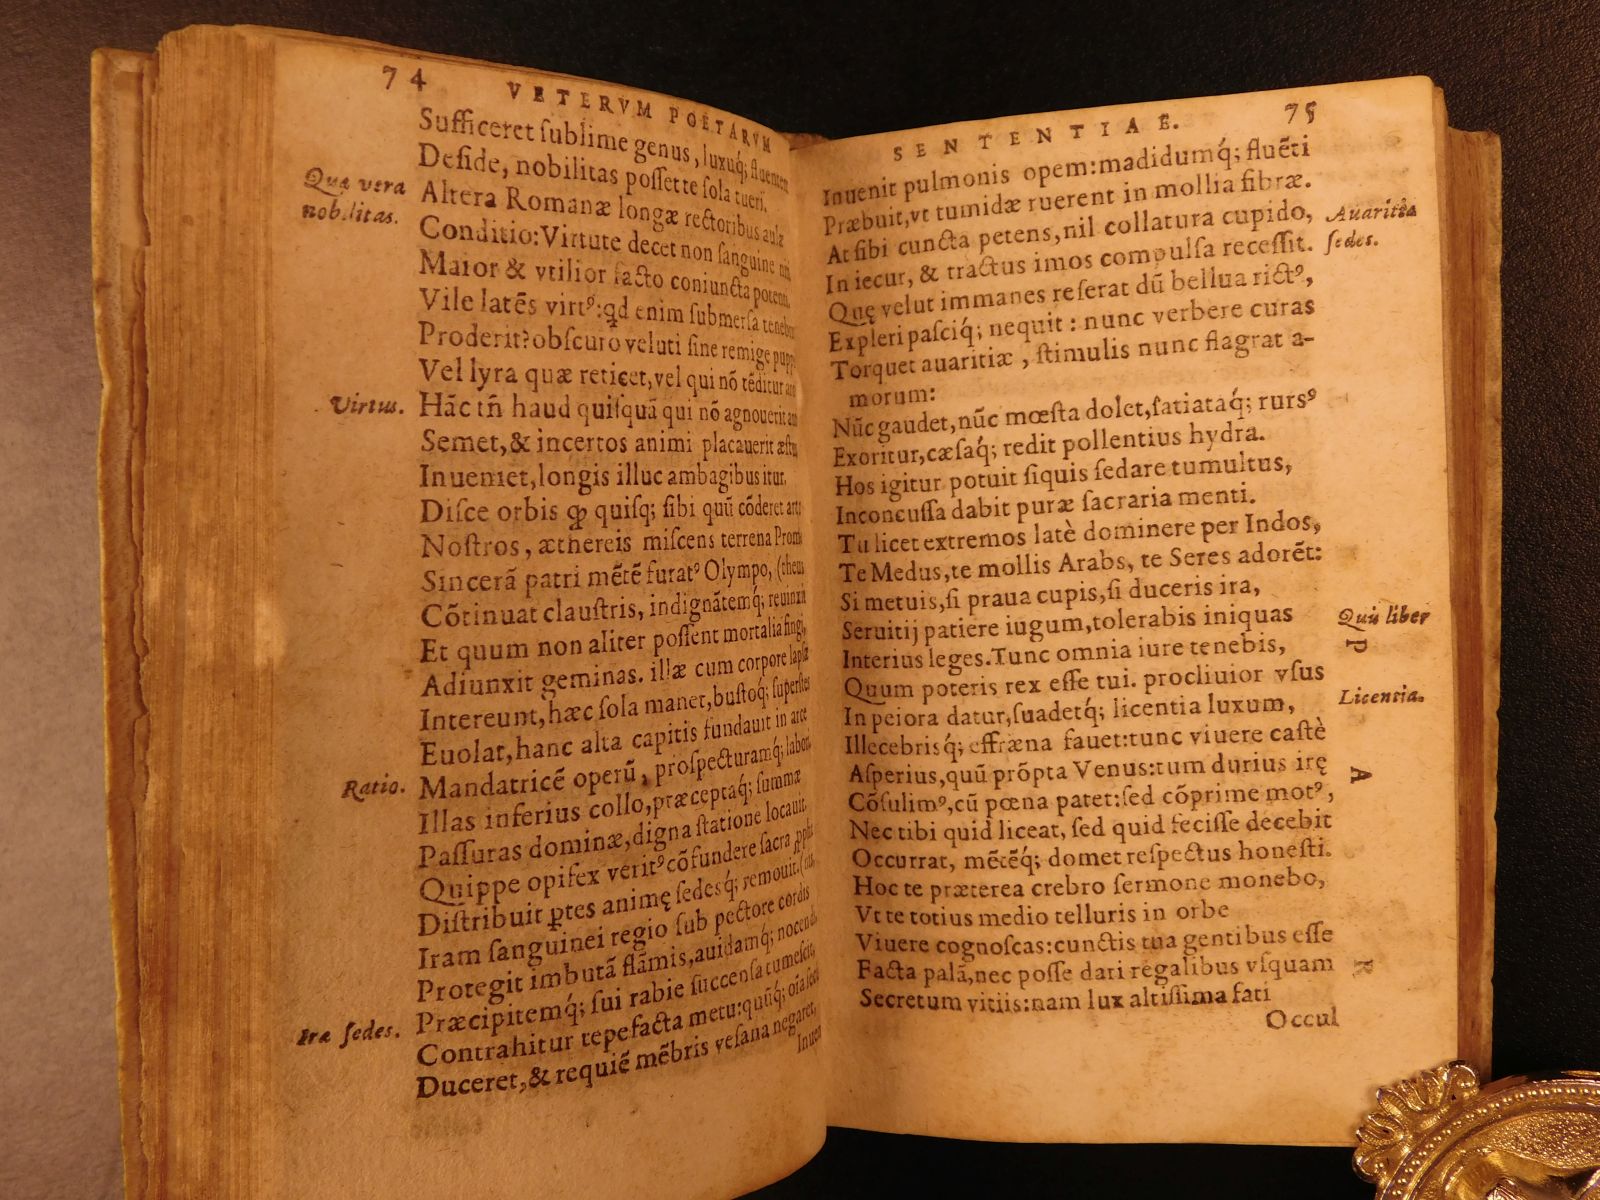 74 VETERVM POETARVM
Sufficeret sublime genus, luxuq́; fluenten
Deside, nobilitas posset te sola tueri.
Quæ vera
nobilitas.
Altera Romanæ longæ rectoribus aulæ
Conditio: Virtute decet non sanguine niti,
Maior & vtilior facto coniuncta potenti,
Vile latēs virtꝰ: qd enim submersa tenebris
Proderit? obscuro veluti sine remige puppis
Vel lyra quæ reticet, vel qui nō tēditur arcus
Virtus.
Hāc tñ haud quisquā qui nō agnouerit ante
Semet, & incertos animi placauerit æstus
Inueniet, longis illuc ambagibus itur.
Disce orbis ꝙ quisq; sibi quū cōderet artus
Nostros, æthereis miscens terrena Prome
Sincerā patri mētē furatꝰ Olympo, (theus
Cōtinuat claustris, indignātemq́; reuinxit
Et quum non aliter possent mortalia fingi,
Adiunxit geminas. illæ cum corpore lapsæ
Intereunt, hæc sola manet, bustoq́; superstes
Euolat, hanc alta capitis fundauit in arce
Ratio.
Mandatricē operū, prospecturamq́; labori,
Illas inferius collo, præceptaq́; summæ
Passuras dominæ, digna statione locauit.
Quippe opifex veritꝰ cōfundere sacra ꝓpha
Distribuit ꝑtes animę sedesq́; remouit. (nis,
Iram sanguinei regio sub pectore cordis
Protegit imbutā flāmis, auidamq́; nocendi
Iræ sedes.
Præcipitemq́; sui rabie succensa tumescit,
Contrahitur tepefacta metu: quūq́; oīa secū
Duceret, & requiē mēbris vesana negaret,
Inuen
SENTENTIAE. 75
Inuenit pulmonis opem: madidumq́; fluēti
Præbuit, vt tumidæ ruerent in mollia fibræ.
Auaritiæ
sedes.
At sibi cuncta petens, nil collatura cupido,
In iecur, & tractus imos compulsa recessit.
Quę velut immanes reserat dū bellua rictꝰ,
Expleri pasciq́; nequit: nunc verbere curas
Torquet auaritiæ, stimulis nunc flagrat a-
morum:
Nūc gaudet, nūc mœsta dolet, satiataq́; rursꝰ
Exoritur, cæsaq́; redit pollentius hydra.
Hos igitur potuit siquis sedare tumultus,
Inconcussa dabit puræ sacraria menti.
Tu licet extremos latè dominere per Indos,
Te Medus, te mollis Arabs, te Seres adorēt:
Si metuis, si praua cupis, si duceris ira,
Seruitij patiere iugum, tolerabis iniquas
Quis liber
Interius leges. Tunc omnia iure tenebis,
Quum poteris rex esse tui. procliuior vsus
Licentia.
In peiora datur, suadetq́; licentia luxum,
Illecebrisq́; effræna fauet: tunc viuere castè
Asperius, quū prōpta Venus: tum durius irę
Cōsulimꝰ, cū pœna patet: sed cōprime motꝰ,
Nec tibi quid liceat, sed quid fecisse decebit
Occurrat, mētēq́; domet respectus honesti.
Hoc te præterea crebro sermone monebo,
Vt te totius medio telluris in orbe
Viuere cognoscas: cunctis tua gentibus esse
Facta palā, nec posse dari regalibus vsquam
Secretum vitiis: nam lux altissima fati
Occul